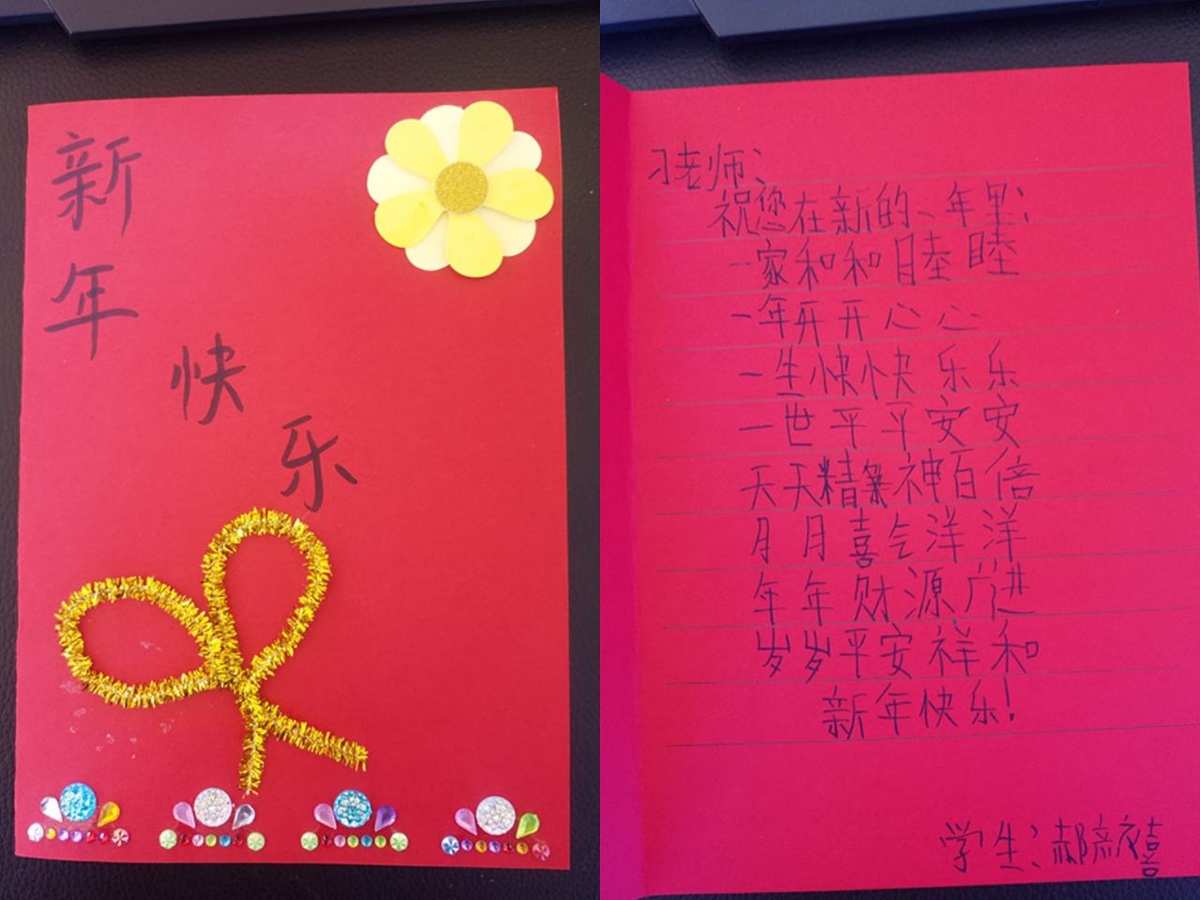 新
年
快
乐
刁老师：
祝您在新的一年里：
一家和和睦睦
一年开开心心
一生快快乐乐
一世平平安安
天天精神百倍
月月喜气洋洋
年年财源广进
岁岁平安祥和
新年快乐！
学生：郝